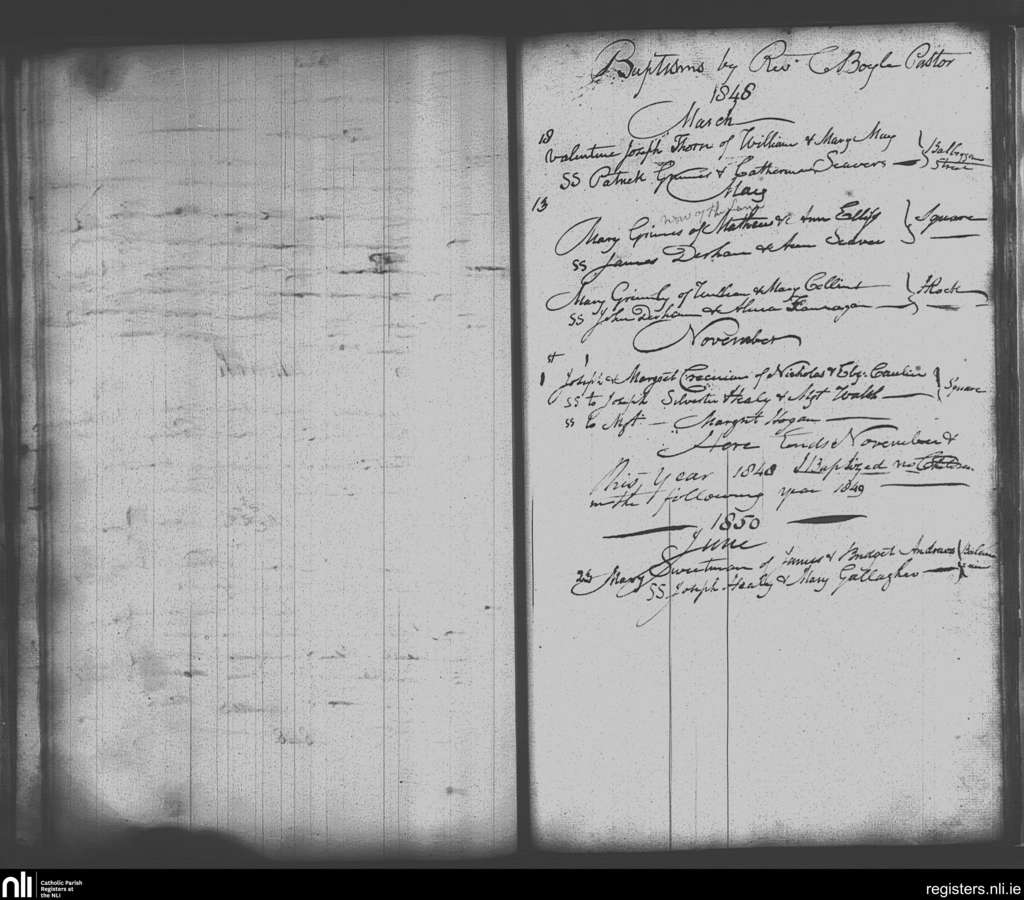 Baptisms by Revd. C Boyle Pastor
1848
March
18
Valentine Joseph Thorn of William & Mary May } Balbriggan
SS Patrick Grimes & Catherine Seavers — } Street
May
13
now of the Land
Mary Grimes of Mathew & Ann Ellis } Square
SS James Derham & Ann Seaver
Mary Grimly of William & Mary Collins } Rock
SS John Derham & Flanragan —
November
1st
Joseph & Margret of Nicholas & Elz. } Square
SS to Joseph Silvester Healy & Mgt Walsh —
SS to Mgt — Margret Hogan —
Here Ends November &
This Year 1848 I Baptized no
in the following year 1849
1850
June
23 Mary Sweetman of James & Bridget Andrews
SS Joseph Healy & Mary Gallagher —
nli
Catholic Parish
Registers at
the NLI
registers.nli.ie